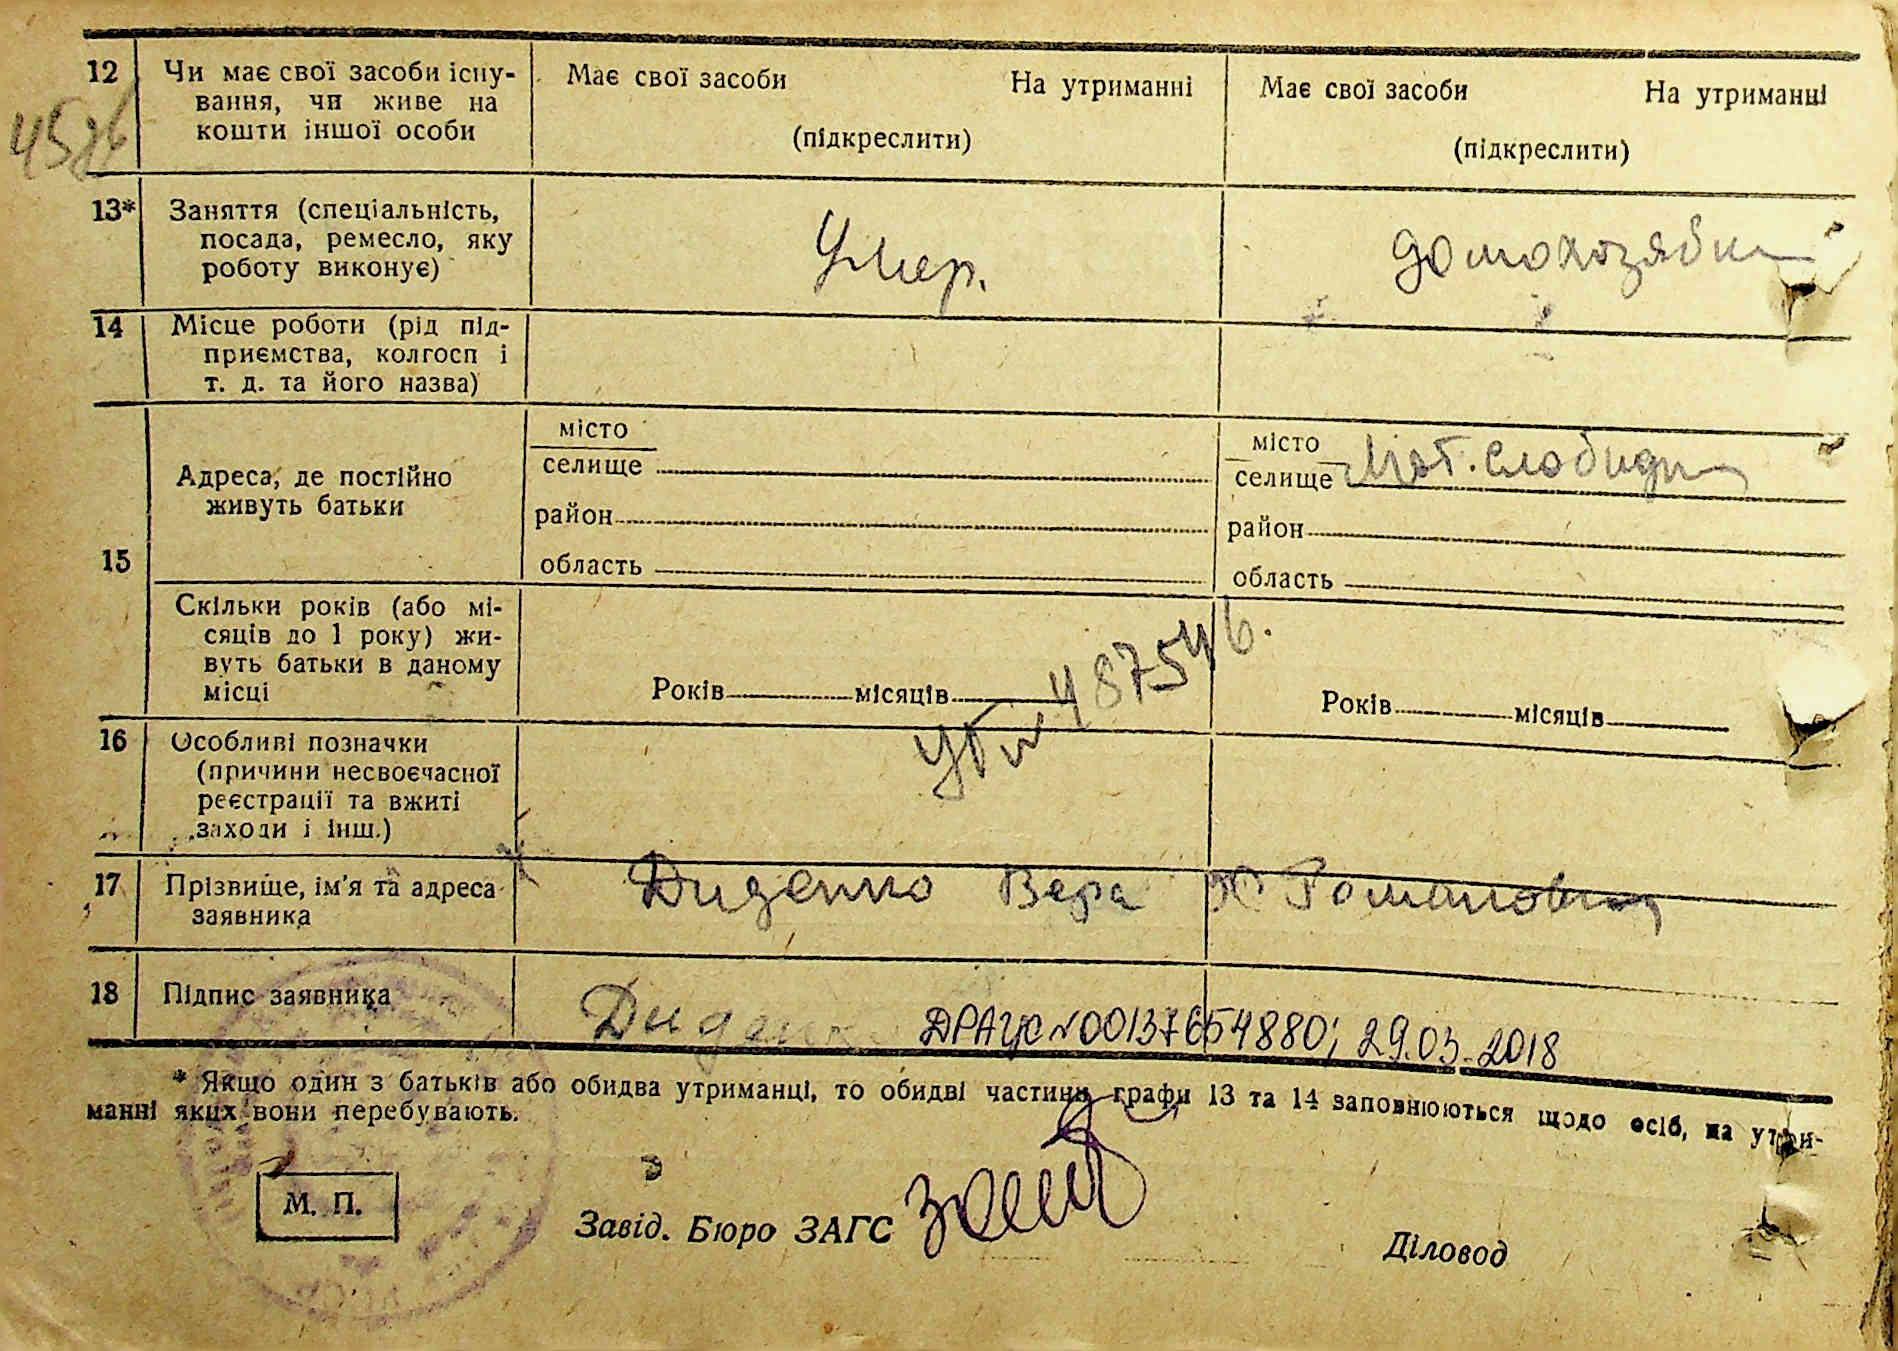 12 Чи має свої засоби існу- Має свої засоби На утриманні Має свої засоби На утриманні
вання, чи живе на
кошти іншої особи (підкреслити) (підкреслити)
13* Заняття (спеціальність,
посада, ремесло, яку Умер. домохозяйка
роботу виконує)
14 Місце роботи (рід під-
приємства, колгосп і
т. д. та його назва)
15
Адреса, де постійно
живуть батьки
місто
селище
район
область
місто
селище Мат. Слобидка
район
область
Скільки років (або мі-
сяців до 1 року) жи-
вуть батьки в даному
місці
Років місяців Років місяців
487546.
16 Особливі позначки
(причини несвоєчасної
реєстрації та вжиті
заходи і інш.)
17 Прізвище, ім'я та адреса
заявника
Диденко Вера Романовна
18 Підпис заявника Диденко
ДРАЦС №00137654880; 29.03.2018
* Якщо один з батьків або обидва утриманці, то обидві частини графи 13 та 14 заповнюються щодо осіб, на утри-
манні яких вони перебувають.
М. П.
Завід. Бюро ЗАГС
Діловод